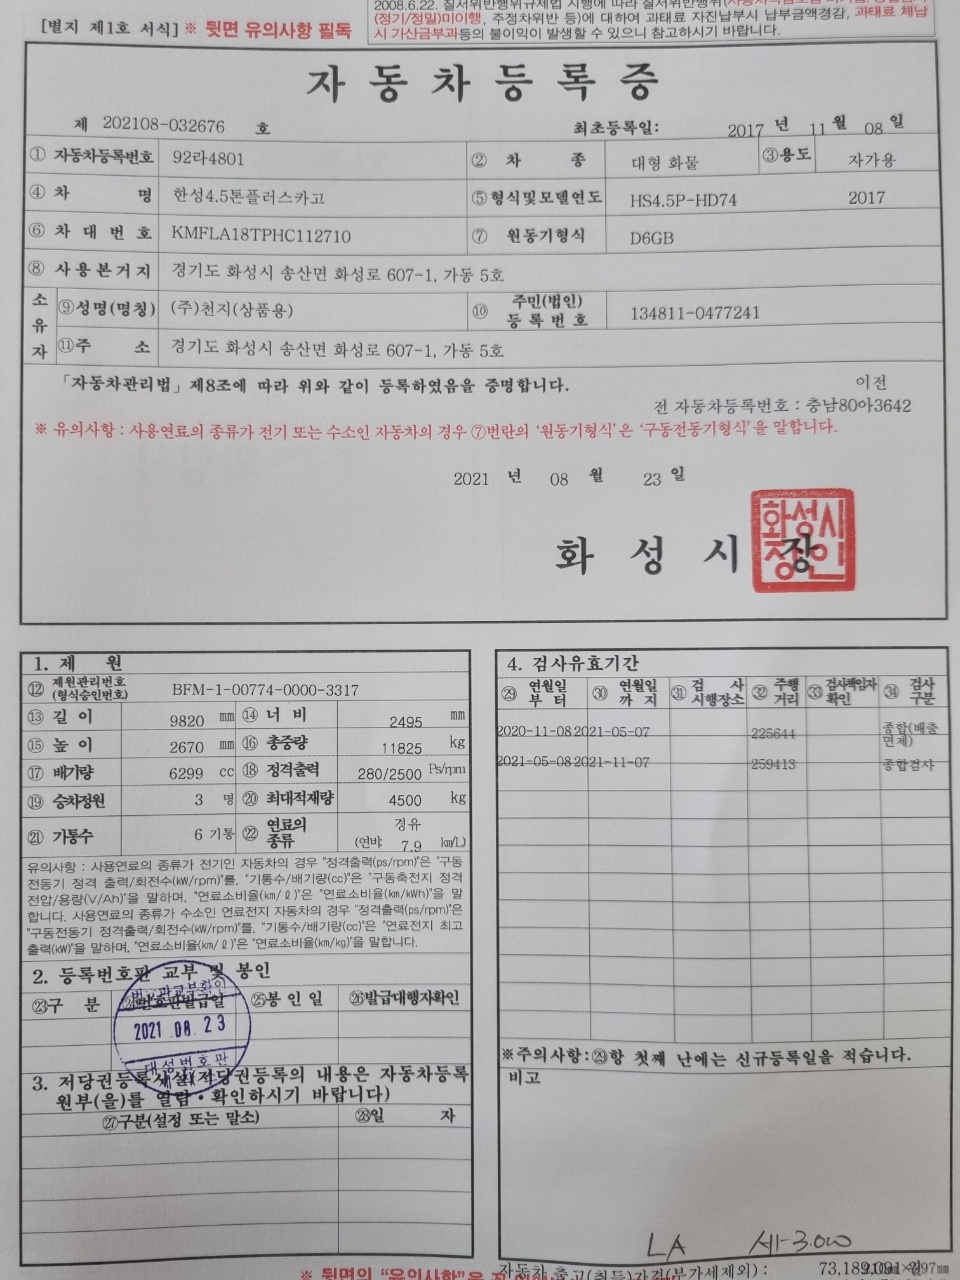 [별지 제1호 서식] ※ 뒷면 유의사항 필독
2008.6.22. 질서위반행위규제법 시행에 따라 질서위반행위
(정기/정밀)미이행, 주정차위반 등)에 대하여 과태료 자진납부시 납부금액경감, 과태료 체납
시 가산금부과등의 불이익이 발생할 수 있으니 참고하시기 바랍니다.
자 동 차 등 록 증
제 202108-032676 호 최초등록일: 2017 년 11 월 08 일
① 자동차등록번호 92라4801 ② 차 종 대형 화물 ③용도 자가용
④ 차 명 한성4.5톤플러스카고 ⑤형식및모델연도 HS4.5P-HD74 2017
⑥ 차 대 번 호 KMFLA18TPHC112710 ⑦ 원동기형식 D6GB
⑧ 사 용 본 거 지 경기도 화성시 송산면 화성로 607-1, 가동 5호
소유자 ⑨성명(명칭) (주)천지(상품용) ⑩ 주민(법인) 등 록 번 호 134811-0477241
⑪주 소 경기도 화성시 송산면 화성로 607-1, 가동 5호
「자동차관리법」 제8조에 따라 위와 같이 등록하였음을 증명합니다. 이전
전 자동차등록번호 : 충남80아3642
※ 유의사항 : 사용연료의 종류가 전기 또는 수소인 자동차의 경우 ⑦번란의 '원동기형식'은 '구동전동기형식'을 말합니다.
2021 년 08 월 23 일
화 성 시 장
화성시
장인
1. 제 원
⑫ 제원관리번호 (형식승인번호) BFM-1-00774-0000-3317
⑬ 길 이 9820 mm ⑭ 너 비 2495 mm
⑮ 높 이 2670 mm ⑯ 총중량 11825 kg
⑰ 배기량 6299 cc ⑱ 정격출력 280/2500 Ps/rpm
⑲ 승차정원 3 명 ⑳ 최대적재량 4500 kg
㉑ 기통수 6 기통 ㉒ 연료의 종류 경유 (연비: 7.9 km/L)
유의사항 : 사용연료의 종류가 전기인 자동차의 경우 "정격출력(ps/rpm)"은 "구동
전동기 정격 출력/회전수(kW/rpm)"를, "기통수/배기량(cc)"은 "구동축전지 정격
전압/용량(V/Ah)"을 말하며, "연료소비율(km/ℓ)"은 "연료소비율(km/kWh)"을 말
합니다. 사용연료의 종류가 수소인 연료전지 자동차의 경우 "정격출력(ps/rpm)"은
"구동전동기 정격출력/회전수(kW/rpm)"를, "기통수/배기량(cc)"은 "연료전지 최고
출력(kW)"을 말하며, "연료소비율(km/ℓ)"은 "연료소비율(km/kg)"을 말합니다.
2. 등록번호판 교부 및 봉인
㉓구 분 ㉔번호판발급일 ㉕봉 인 일 ㉖발급대행자확인
2021 08. 23
대성번호판
3. 저당권등록사실(저당권등록의 내용은 자동차등록
원부(을)를 열람·확인하시기 바랍니다)
㉗구분(설정 또는 말소) ㉘일 자
4. 검사유효기간
㉙ 연월일 부 터 ㉚ 연월일 까 지 ㉛ 검 사 시행장소 ㉜ 주행 거리 ㉝ 검사책임자 확인 ㉞ 검사 구분
2020-11-08 2021-05-07 225644 종합(배출면제)
2021-05-08 2021-11-07 259413 종합검사
※주의사항:㉙항 첫째 난에는 신규등록일을 적습니다.
비고
LA 세-3.000
자동차 출고(취득)가격(부가세제외) : 73,189,091 원
※ 뒷면의 "유의사항"은 꼭